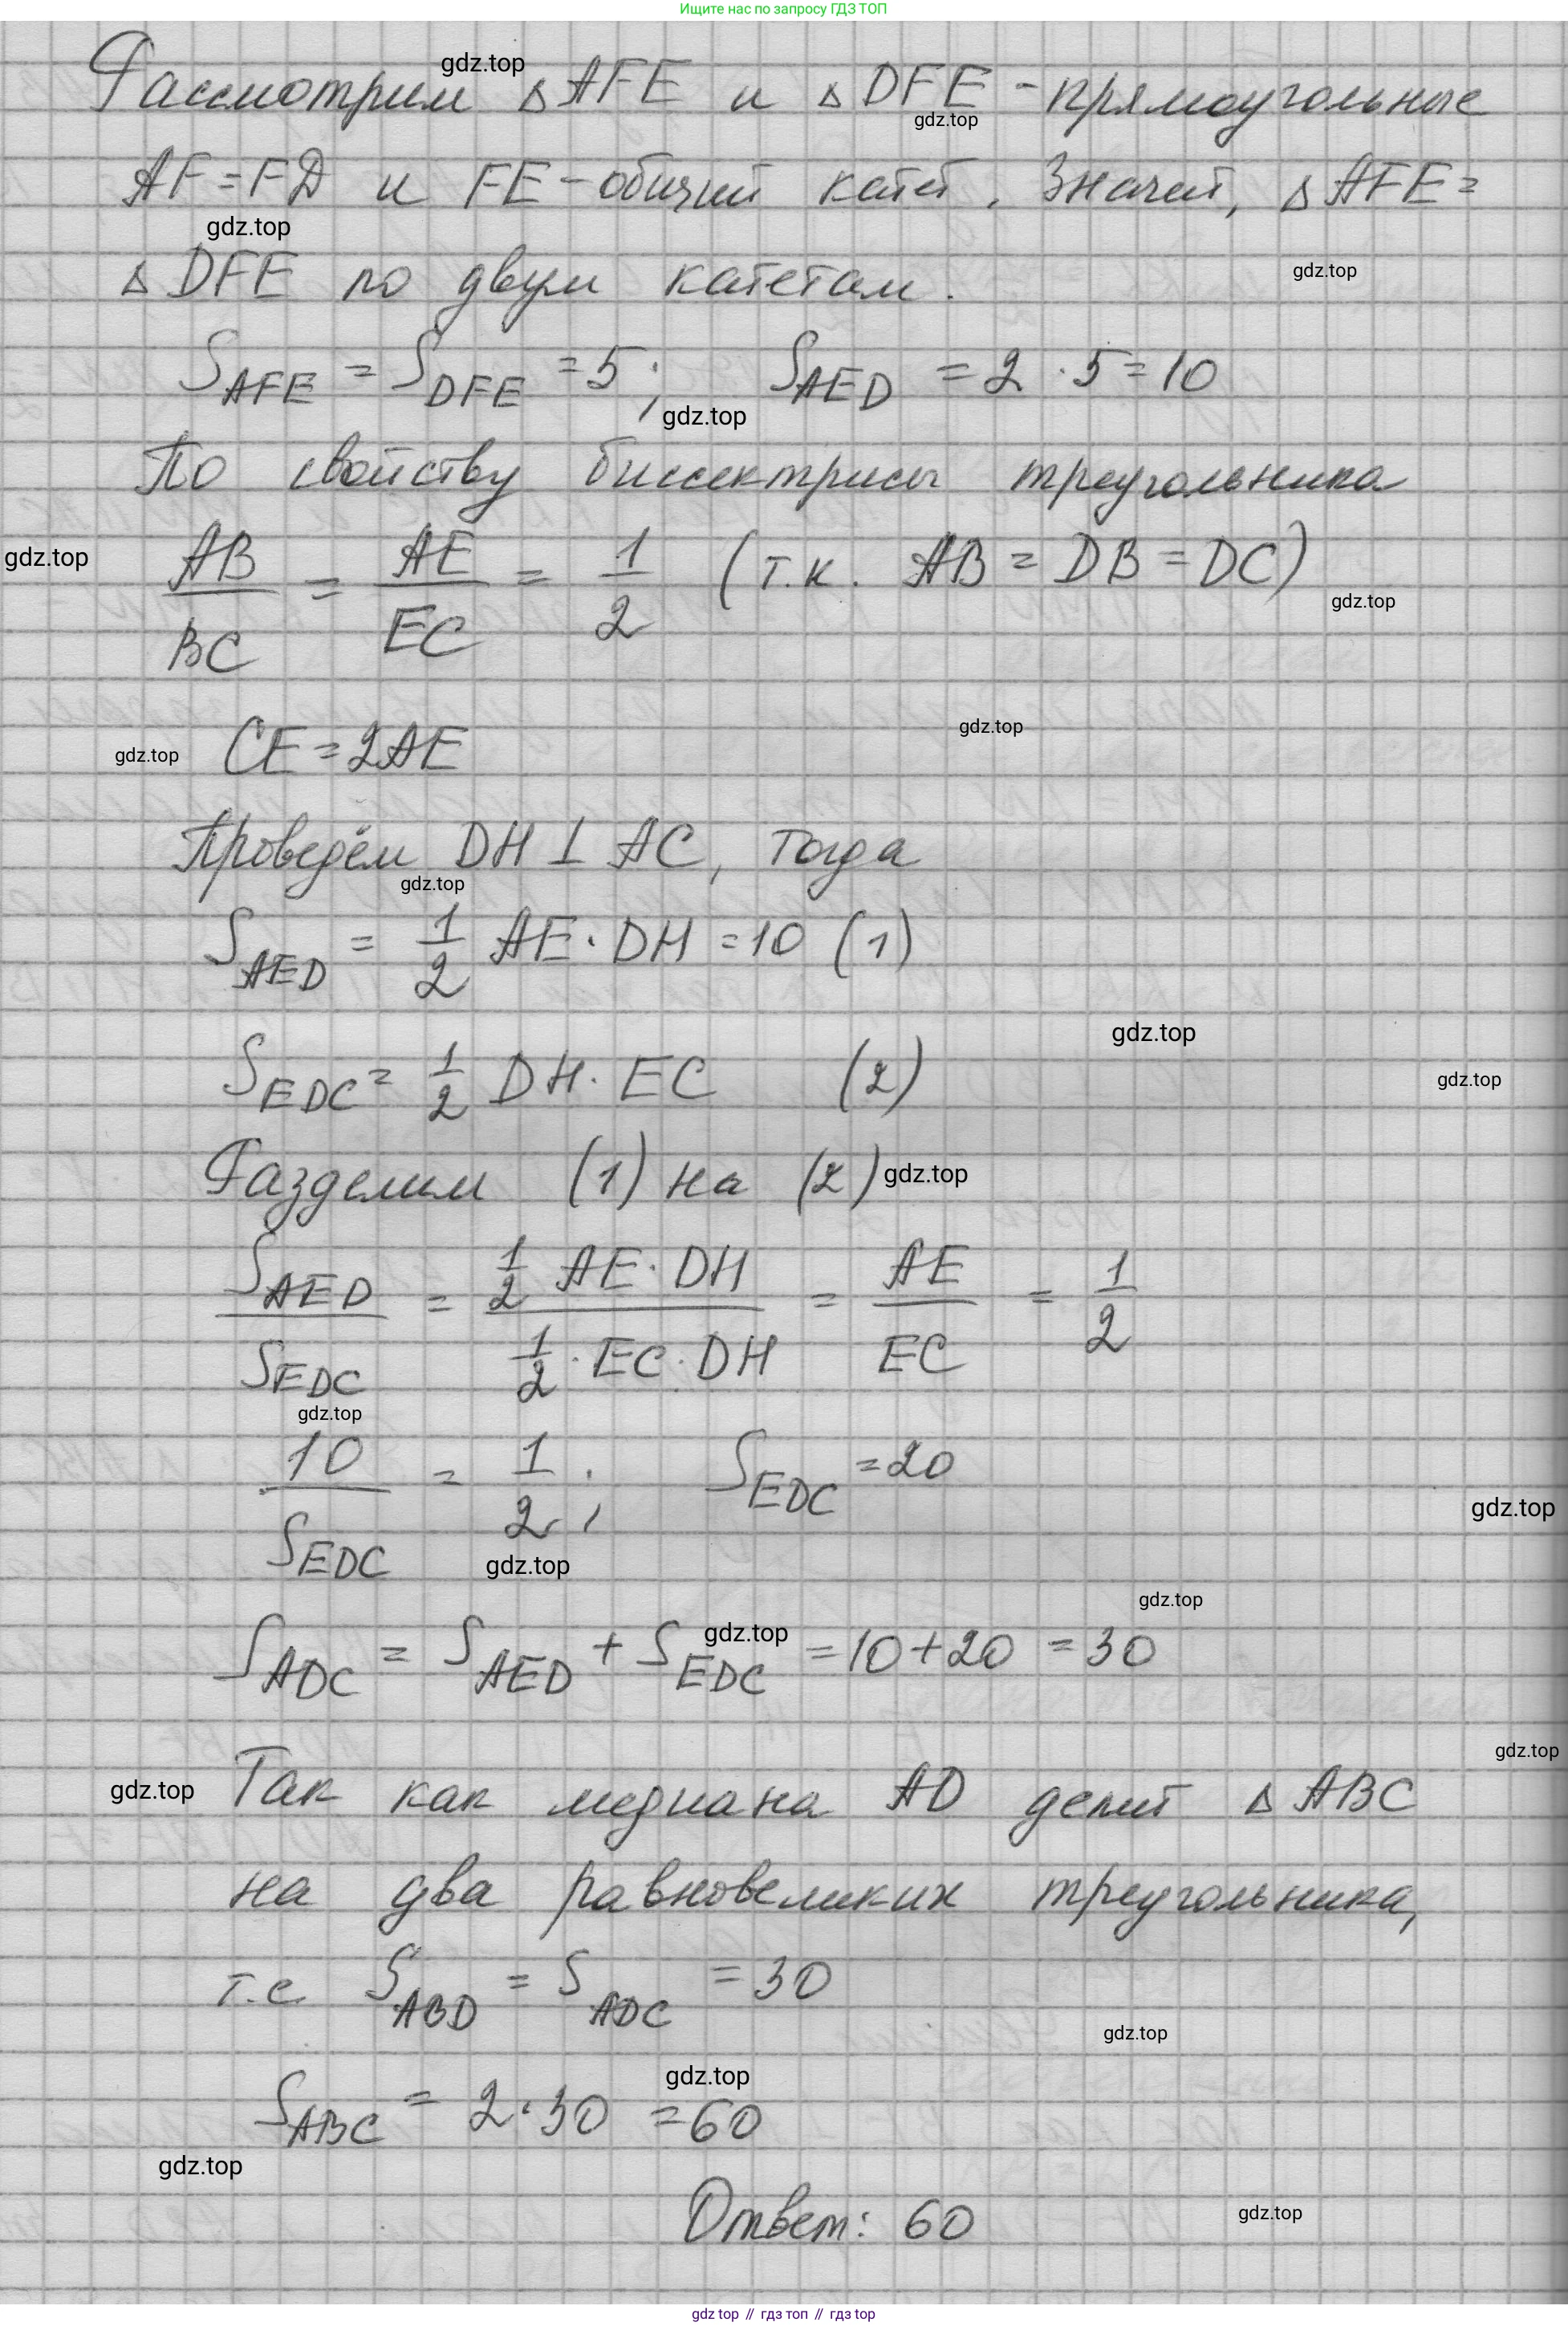 Ищите нас по запросу ГДЗ ТОП
gdz.top
Рассмотрим △AFE и △DFE - прямоугольные
gdz.top
AF = FD и FE - общий катет. Значит, △AFE =
gdz.top
△DFE по двум катетам.
gdz.top
S_AFE = S_DFE = 5; S_AED = 2 · 5 = 10
gdz.top
По свойству биссектрисы треугольника
gdz.top
AB/BC = AE/EC = 1/2 (т.к. AB = DB = DC)
gdz.top
CE = 2AE
gdz.top
gdz.top
Проведём DH ⊥ AC, тогда
gdz.top
S_AED = 1/2 AE · DH = 10 (1)
gdz.top
S_EDC = 1/2 DH · EC (2)
gdz.top
Разделим (1) на (2)
gdz.top
S_AED/S_EDC = (1/2 AE · DH)/(1/2 · EC · DH) = AE/EC = 1/2
gdz.top
10/S_EDC = 1/2; S_EDC = 20
gdz.top
gdz.top
gdz.top
S_ADC = S_AED + S_EDC = 10 + 20 = 30
gdz.top
gdz.top
Так как медиана AD делит △ABC
gdz.top
на два равновеликих треугольника,
т.е. S_ABD = S_ADC = 30
gdz.top
gdz.top
S_ABC = 2 · 30 = 60
gdz.top
Ответ: 60
gdz.top
gdz top // гдз топ // гдз top